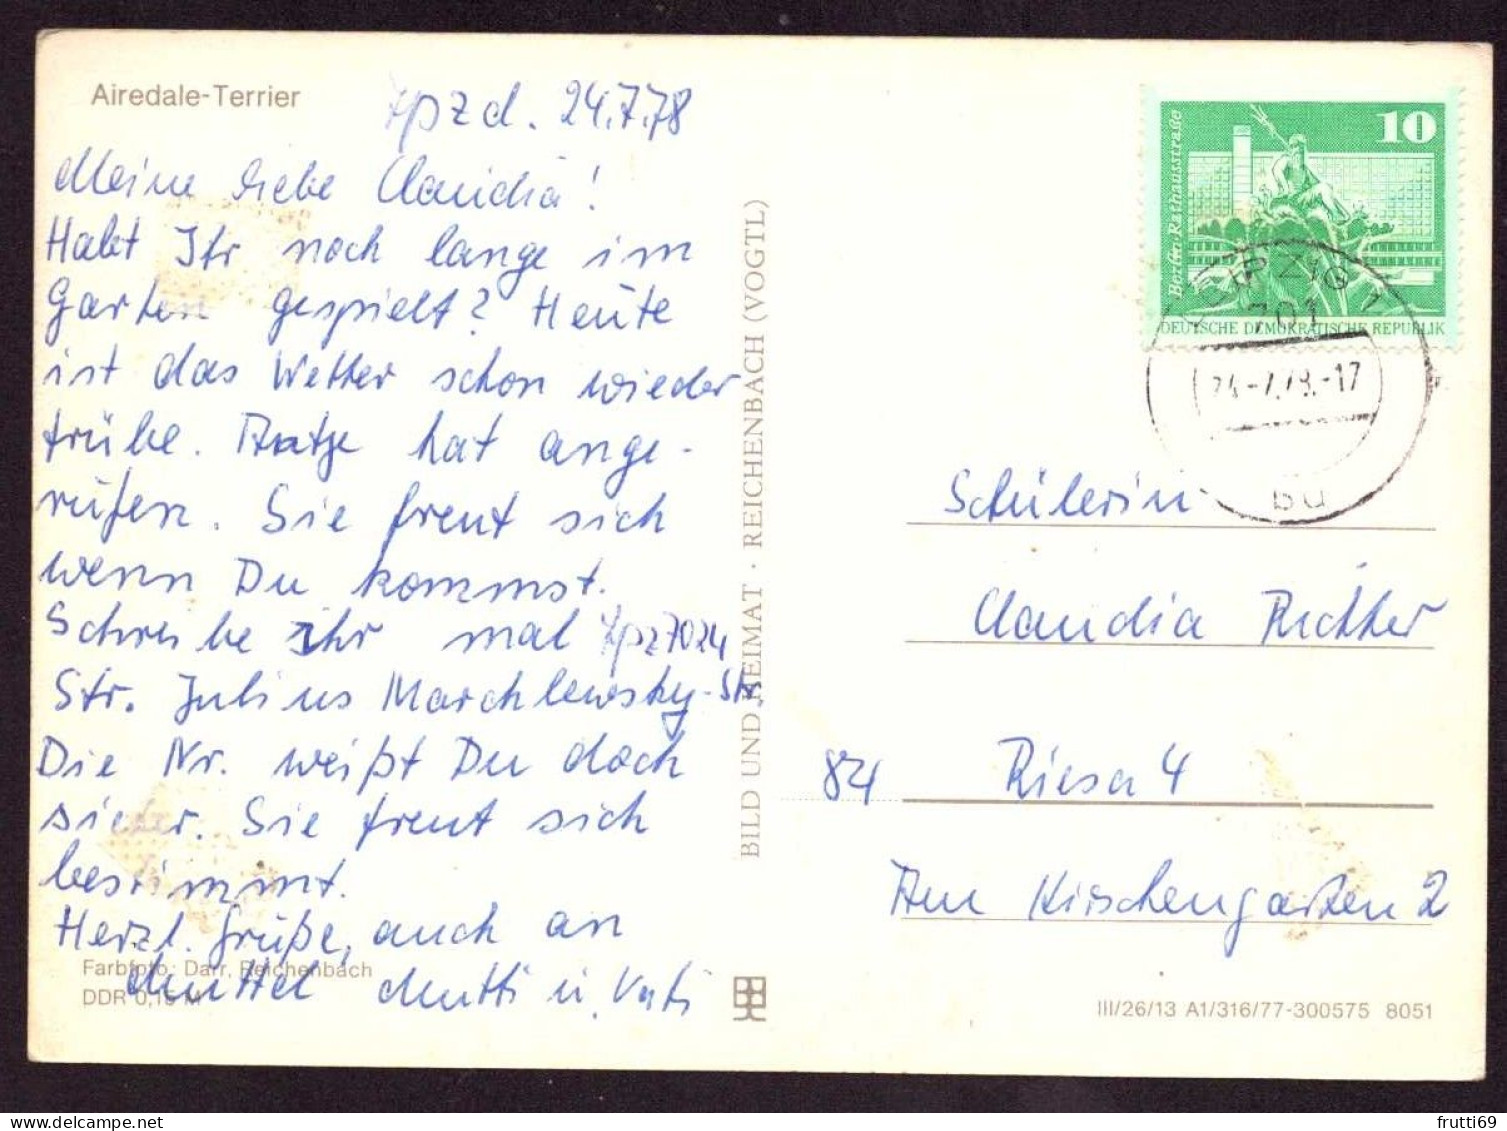 Airedale-Terrier
Lpz d. 24.7.78
Meine liebe Claudia!
Habt Ihr noch lange im
Garten gespielt? Heute
ist das Wetter schon wieder
trübe. hat ange-
rufen. Sie freut sich
wenn Du kommst.
Schreibe Ihr mal Lpz 7024
Str. Julius Marchlewsky-Str.
Die Nr. weißt Du doch
sicher. Sie freut sich
bestimmt.
Herzl. Grüße, auch an
Mutti u. Vati
Farbfoto: Darr, Reichenbach
DDR 0,15 M
BILD UND HEIMAT · REICHENBACH (VOGTL)
10
Berlin-Rathausstraße
DEUTSCHE DEMOKRATISCHE REPUBLIK
LEIPZIG 1
701
24.-7.78.-17
bd
Schülerin
Claudia Richter
84 Riesa 4
Am Kirschengarten 2
III/26/13 A1/316/77-300575 8051
frutti69